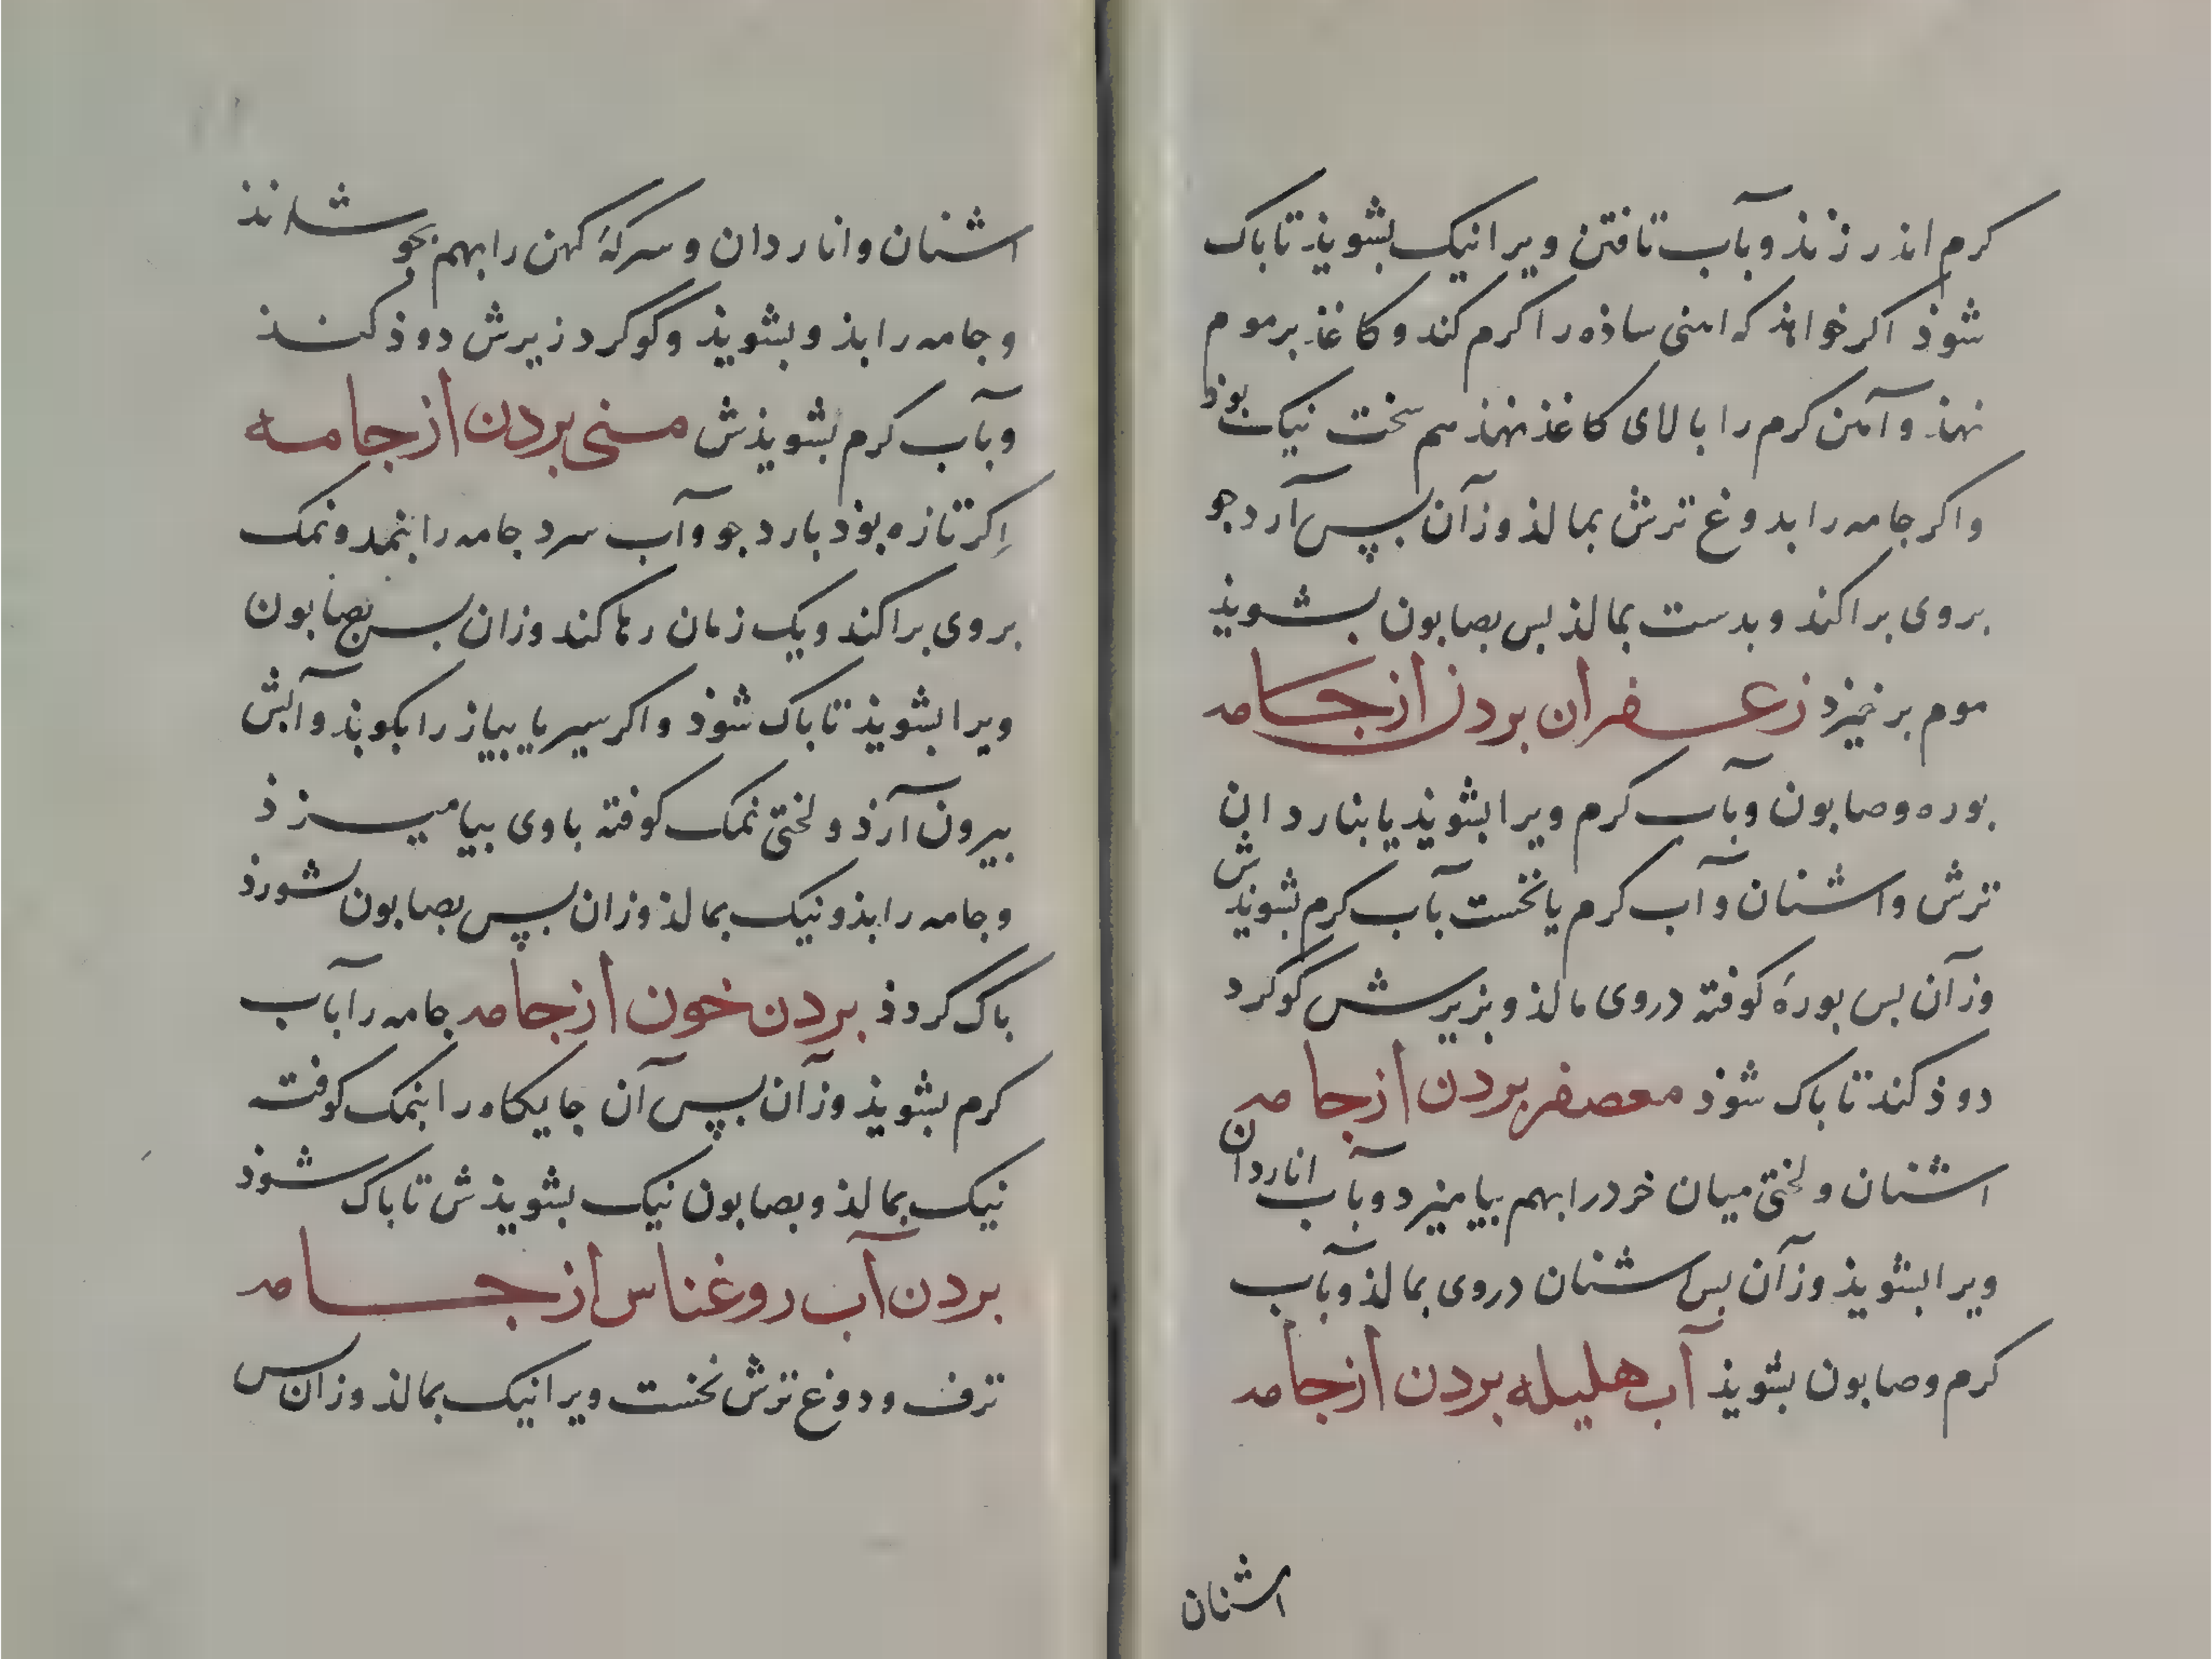 کرم اندر زند و بآب تافتن ویرا نیک بشویذ تا باک
شوذ اکر خواهذ که اهنی ساذه را کرم کند و کاغذ بر موم
نهذ و آهن کرم را بالای کاغذ نهذ هم سخت نیک بوذ
واکر جامه را بدوغ ترش بمالذ وزآن بپس آرد جو
بروی براکند و بدست بمالذ بس بصابون بشویذ
موم برخیزد زعفران بردن از جامه
بوره و صابون و بآب کرم ویرا بشویذ یا بناردان
ترش و اشنان و آب کرم یا نخست بآب کرم بشویذش
وزآن بس بورهٔ کوفته دروی مالذ و بزیرش گوکرد
دوذ کند تا باک شوذ معصفر بردن از جامه
اشنان و لختی میان خرد را بهم بیامیزد و بآب اناردان
ویرا بشویذ وزآن بس اشنان دروی بمالذ و بآب
کرم و صابون بشویذ آب هلیله بردن از جامه
اشنان
اشنان و اناردان و سرکهٔ کهن را بهم بجوشانذ
و جامه را بذو بشویذ و گوگرد زیرش دوذ کنذ
و بآب کرم بشویذش منی بردن از جامه
اکر تازه بوذ بارد جو و آب سرد جامه را بنمد ونمک
بروی براکند و یک زمان رها کند وزان بس بصابون
ویرا بشویذ تا باک شوذ واکر سیر یا بیاز را بکوبذ و آبش
بیرون آرذ و لختی نمک کوفته با وی بیامیزذ
و جامه را بذو نیک بمالذ وزان بپس بصابون شورذ
باک گردذ بردن خون از جامه جامه را بآب
کرم بشویذ وزآن بپس آن جایکاه را بنمک کوفته
نیک بمالذ و بصابون نیک بشویذش تا باک شوذ
بردن آب روغناس از جامه
ترف و دوغ ترش نخست ویرا نیک بمالذ وزان بس